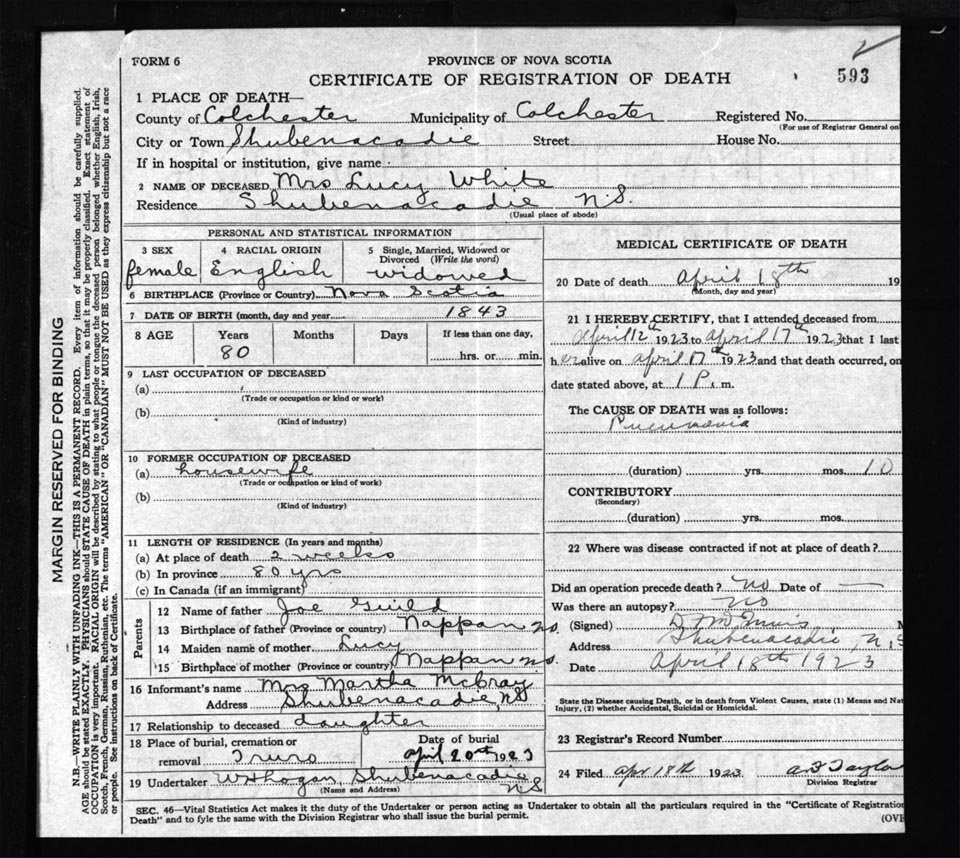 FORM 6
PROVINCE OF NOVA SCOTIA
CERTIFICATE OF REGISTRATION OF DEATH
593
1 PLACE OF DEATH—
County of Colchester Municipality of Colchester Registered No.
(For use of Registrar General on
City or Town Shubenacadie Street House No.
If in hospital or institution, give name
2 NAME OF DECEASED Mrs Lucy White
Residence Shubenacadie N.S.
(Usual place of abode)
PERSONAL AND STATISTICAL INFORMATION
3 SEX 4 RACIAL ORIGIN 5 Single, Married, Widowed or
Divorced (Write the word)
female English widowed
6 BIRTHPLACE (Province or Country) Nova Scotia
7 DATE OF BIRTH (month, day and year) 1843
8 AGE Years Months Days If less than one day,
80 hrs. or min.
9 LAST OCCUPATION OF DECEASED
(a)
(Trade or occupation or kind or work)
(b)
(Kind of industry)
10 FORMER OCCUPATION OF DECEASED
(a) housewife
(Trade or occupation or kind of work)
(b)
(Kind of industry)
11 LENGTH OF RESIDENCE (In years and months)
(a) At place of death 2 weeks
(b) In province 80 yrs
(c) In Canada (if an immigrant)
Parents
12 Name of father Joe Guild
13 Birthplace of father (Province or country) Nappan NS.
14 Maiden name of mother Lucy
15 Birthplace of mother (Province or country) Nappan NS.
16 Informant's name Mrs Martha McCray
Address Shubenacadie, NS
17 Relationship to deceased daughter
18 Place of burial, cremation or Date of burial
removal Truro April 20th 1923
19 Undertaker W H Hogan, Shubenacadie
(Name and Address) N S
MEDICAL CERTIFICATE OF DEATH
20 Date of death April 18th 19
(Month, day and year)
21 I HEREBY CERTIFY, that I attended deceased from
April 12th 1923 to April 17th 1923 that I last
h er alive on April 17th 1923 and that death occurred, on
date stated above, at 1 P. m.
The CAUSE OF DEATH was as follows:
Pneumonia
(duration) yrs. mos. 10
CONTRIBUTORY
(Secondary)
(duration) yrs. mos.
22 Where was disease contracted if not at place of death?
Did an operation precede death? No Date of —
Was there an autopsy? No
(Signed)
Address Shubenacadie, N.S
Date April 18th 1923
State the Disease causing Death, or in death from Violent Causes, state (1) Means and Nat
Injury, (2) whether Accidental, Suicidal or Homicidal.
23 Registrar's Record Number
24 Filed Apr 18th 1923 Taylo
Division Registrar
SEC. 46—Vital Statistics Act makes it the duty of the Undertaker or person acting as Undertaker to obtain all the particulars required in the "Certificate of Registration
Death" and to fyle the same with the Division Registrar who shall issue the burial permit.
(OV
MARGIN RESERVED FOR BINDING
N.B.—WRITE PLAINLY WITH UNFADING INK—THIS IS A PERMANENT RECORD. Every item of information should be carefully supplied.
AGE should be stated EXACTLY. PHYSICIANS should STATE CAUSE OF DEATH in plain terms, so that it may be properly classified. Exact statement of
OCCUPATION is very important. RACIAL ORIGIN will be described by stating to what people or tongue the deceased person belonged whether English, Irish,
Scotch, French, German, Russian, Ruthenian, etc. The terms "AMERICAN" OR "CANADIAN" MUST NOT BE USED as they express citizenship but not a race
or people. See instructions on back of Certificate.